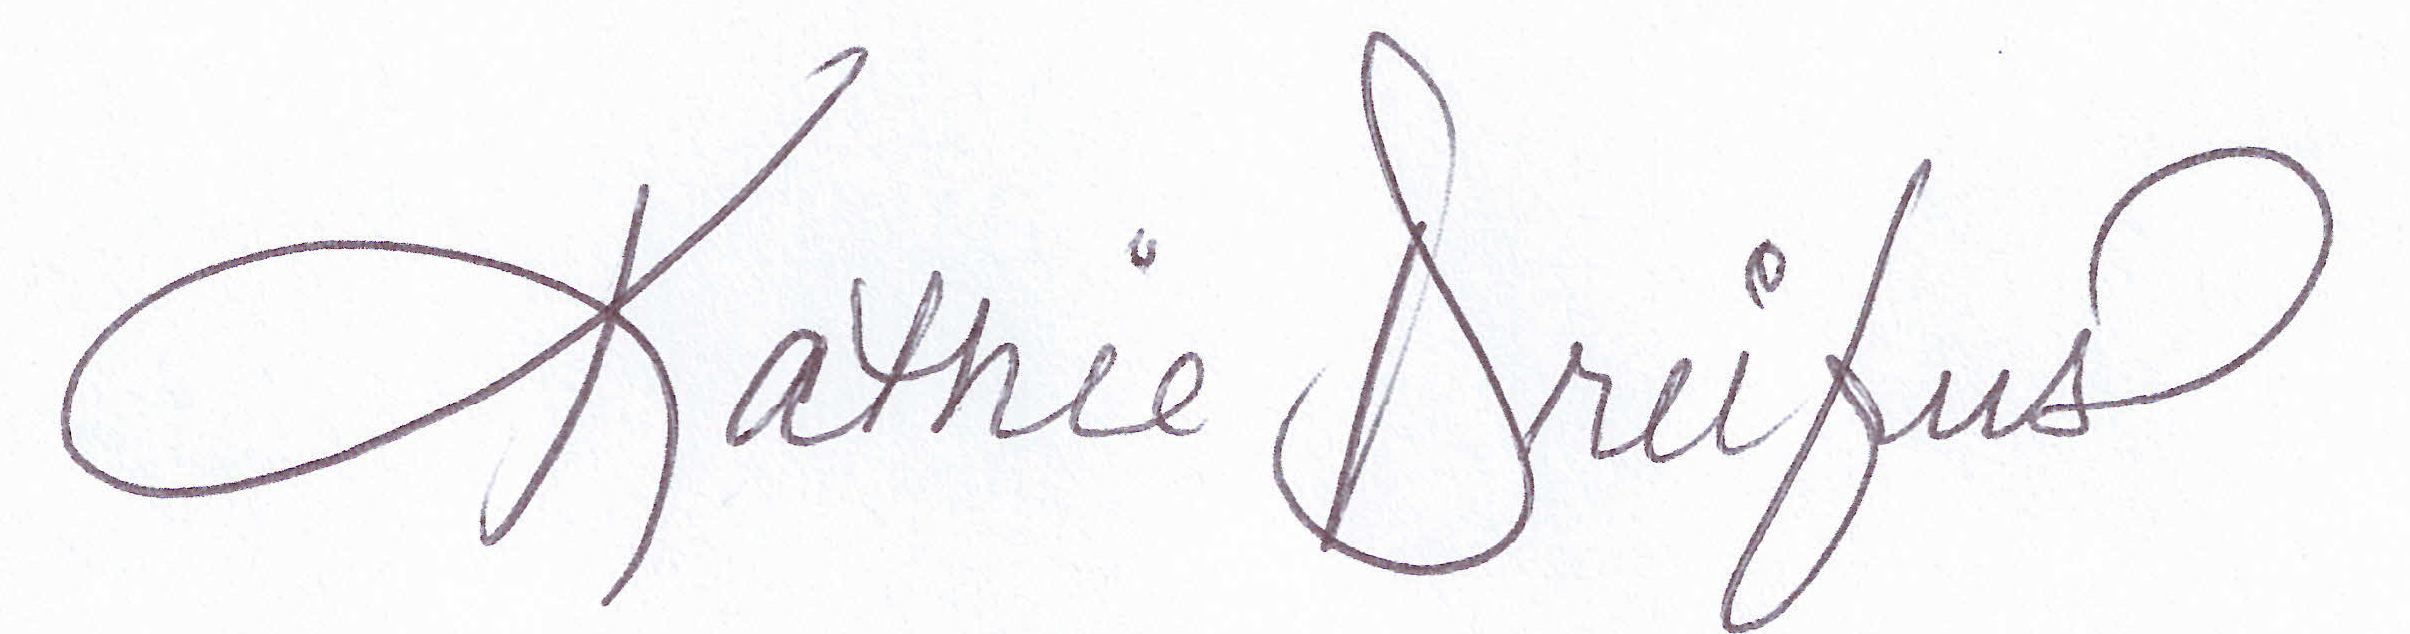 Kathie Dreifus